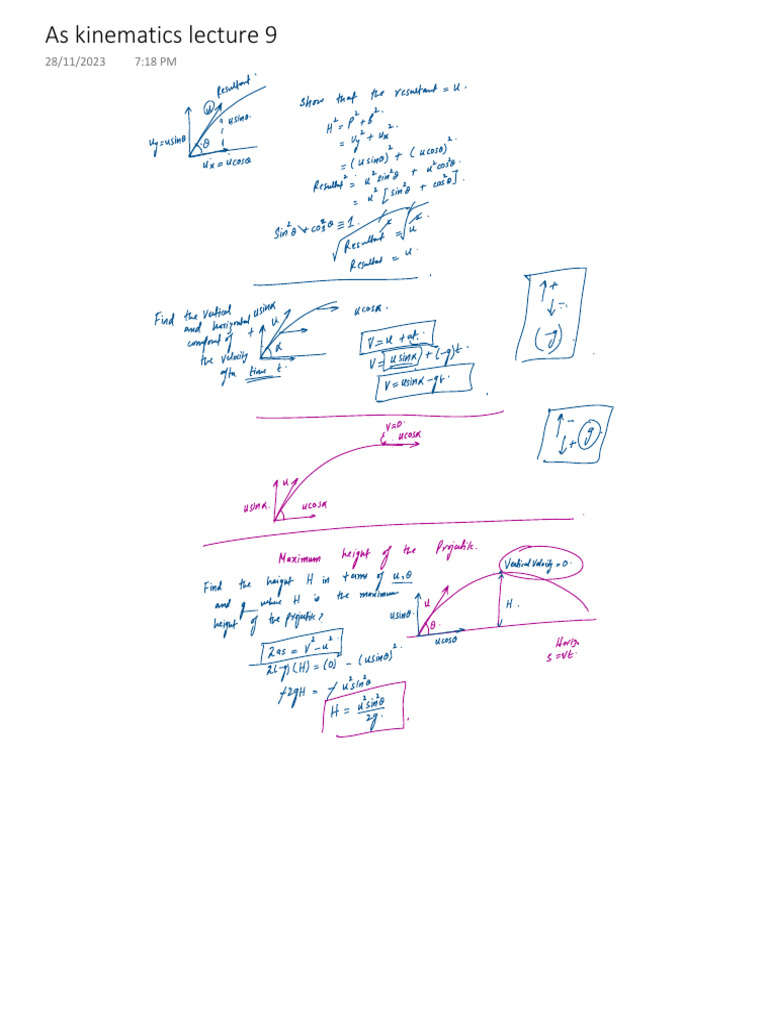 As kinematics lecture 9
28/11/2023 7:18 PM
Resultant.
u
usinθ.
uy=usinθ
θ
ux=ucosθ
Show that the resultant = u.
H² = P²+B².
= uy² + ux².
= (usinθ)² + (ucosθ)².
Resultant² = u²sin²θ + u²cos²θ.
= u² [sin²θ + cos²θ].
Sin²θ + cos²θ ≡ 1.
√Resultant² = √u².
Resultant = u.
Find the vertical
and horizontal
component of
the velocity
after time t.
usinα
u
+
α
ucosα.
V = u + at.
V = usinα + (-g)t.
V = usinα - gt.
↑ +
↓ -.
(-g)
↑ -
↓ + g.
V=0.
ucosα
u
usinα.
ucosα
Maximum height of the Projectile.
Find the height H in terms of u, θ
and g where H is the maximum
height of the projectile?
Vertical Velocity = 0.
u
usinθ.
θ.
ucosθ
H.
Horiz.
s = vt.
2as = V² - u²
2(-g)(H) = (0)² - (usinθ)²
-2gH = -u²sin²θ
H = u²sin²θ
2g.